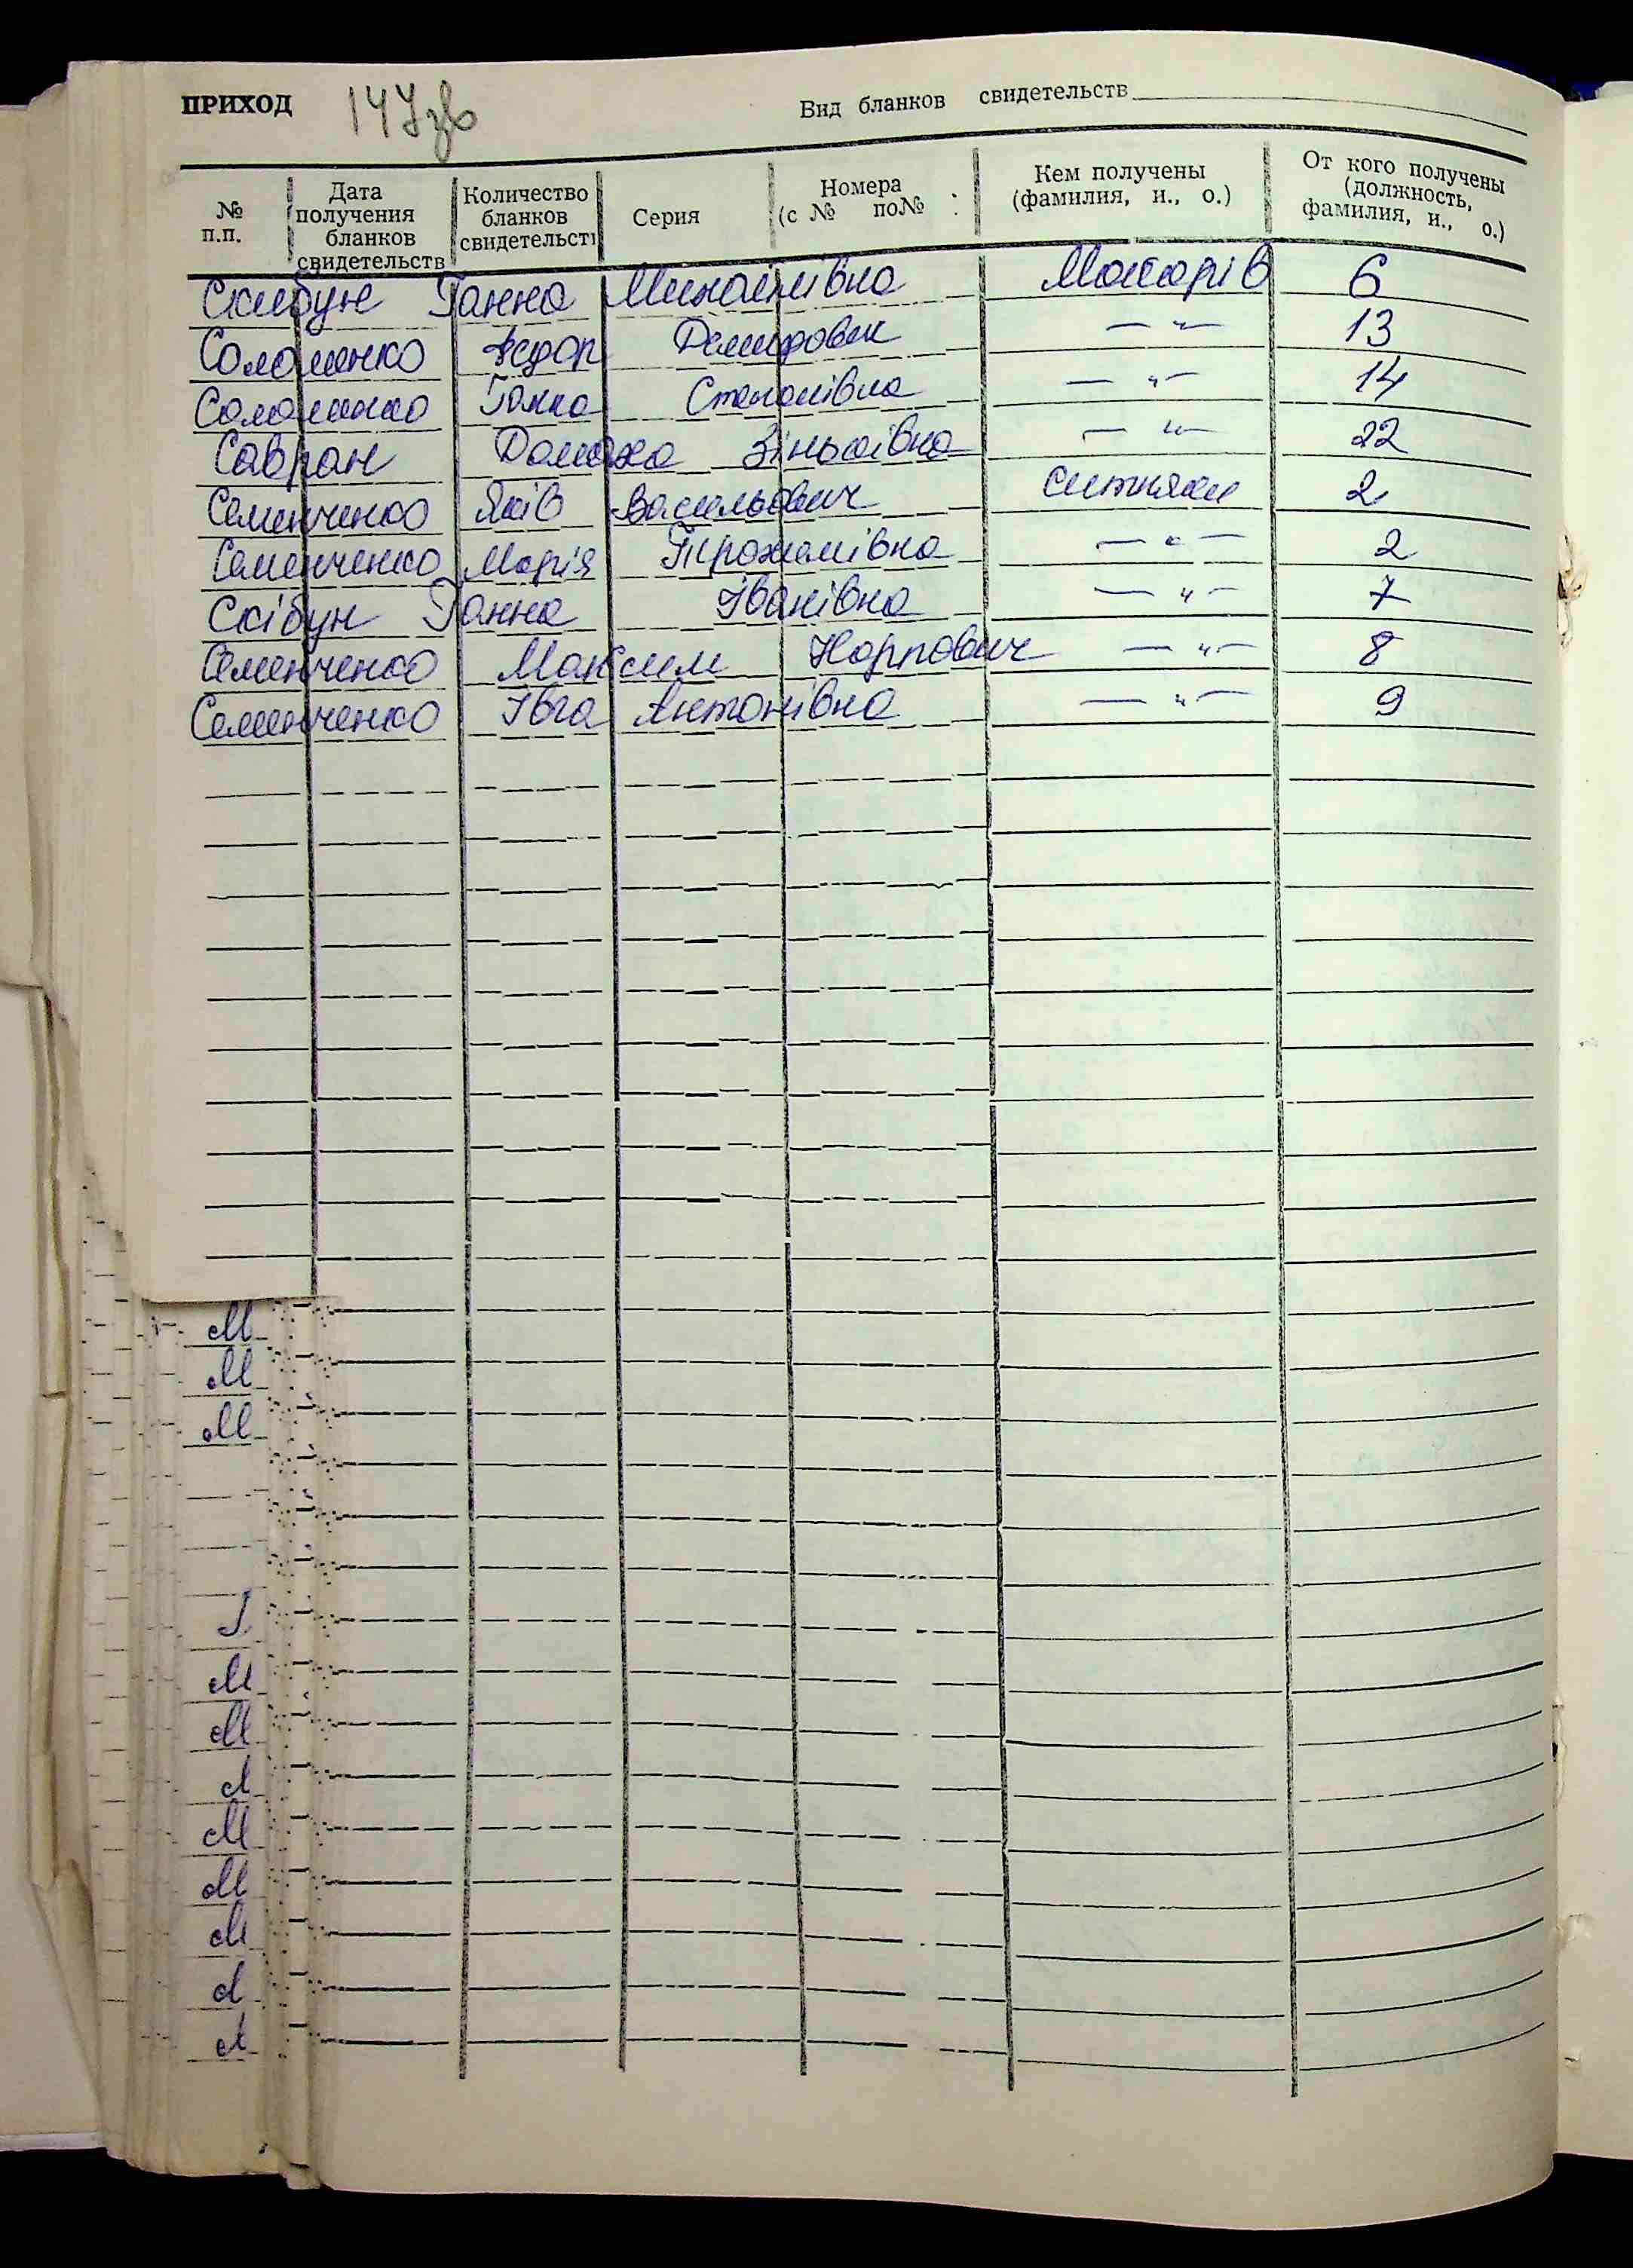 ПРИХОД 147зв Вид бланков свидетельств
№ п.п. Дата получения бланков свидетельств Количество бланков свидетельств Серия Номера (с № по№ Кем получены (фамилия, и., о.) От кого получены (должность, фамилия, и., о.)
Скибун Ганна Михайлівна Макарів 6
Соломенко Федор Демидовик — " — 13
Соломенко Ганна Степанівна — " — 14
Савран Домаха Зіньківна — " — 22
Семенченко Яків Васильович Ситняки 2
Семенченко Марія Трохимівна — " — 2
Скібун Ганна Іванівна — " — 7
Семенченко Максим Карпович — " — 8
Семенченко Івга Антонівна — " — 9
М
М
М
Г
М
М
М
М